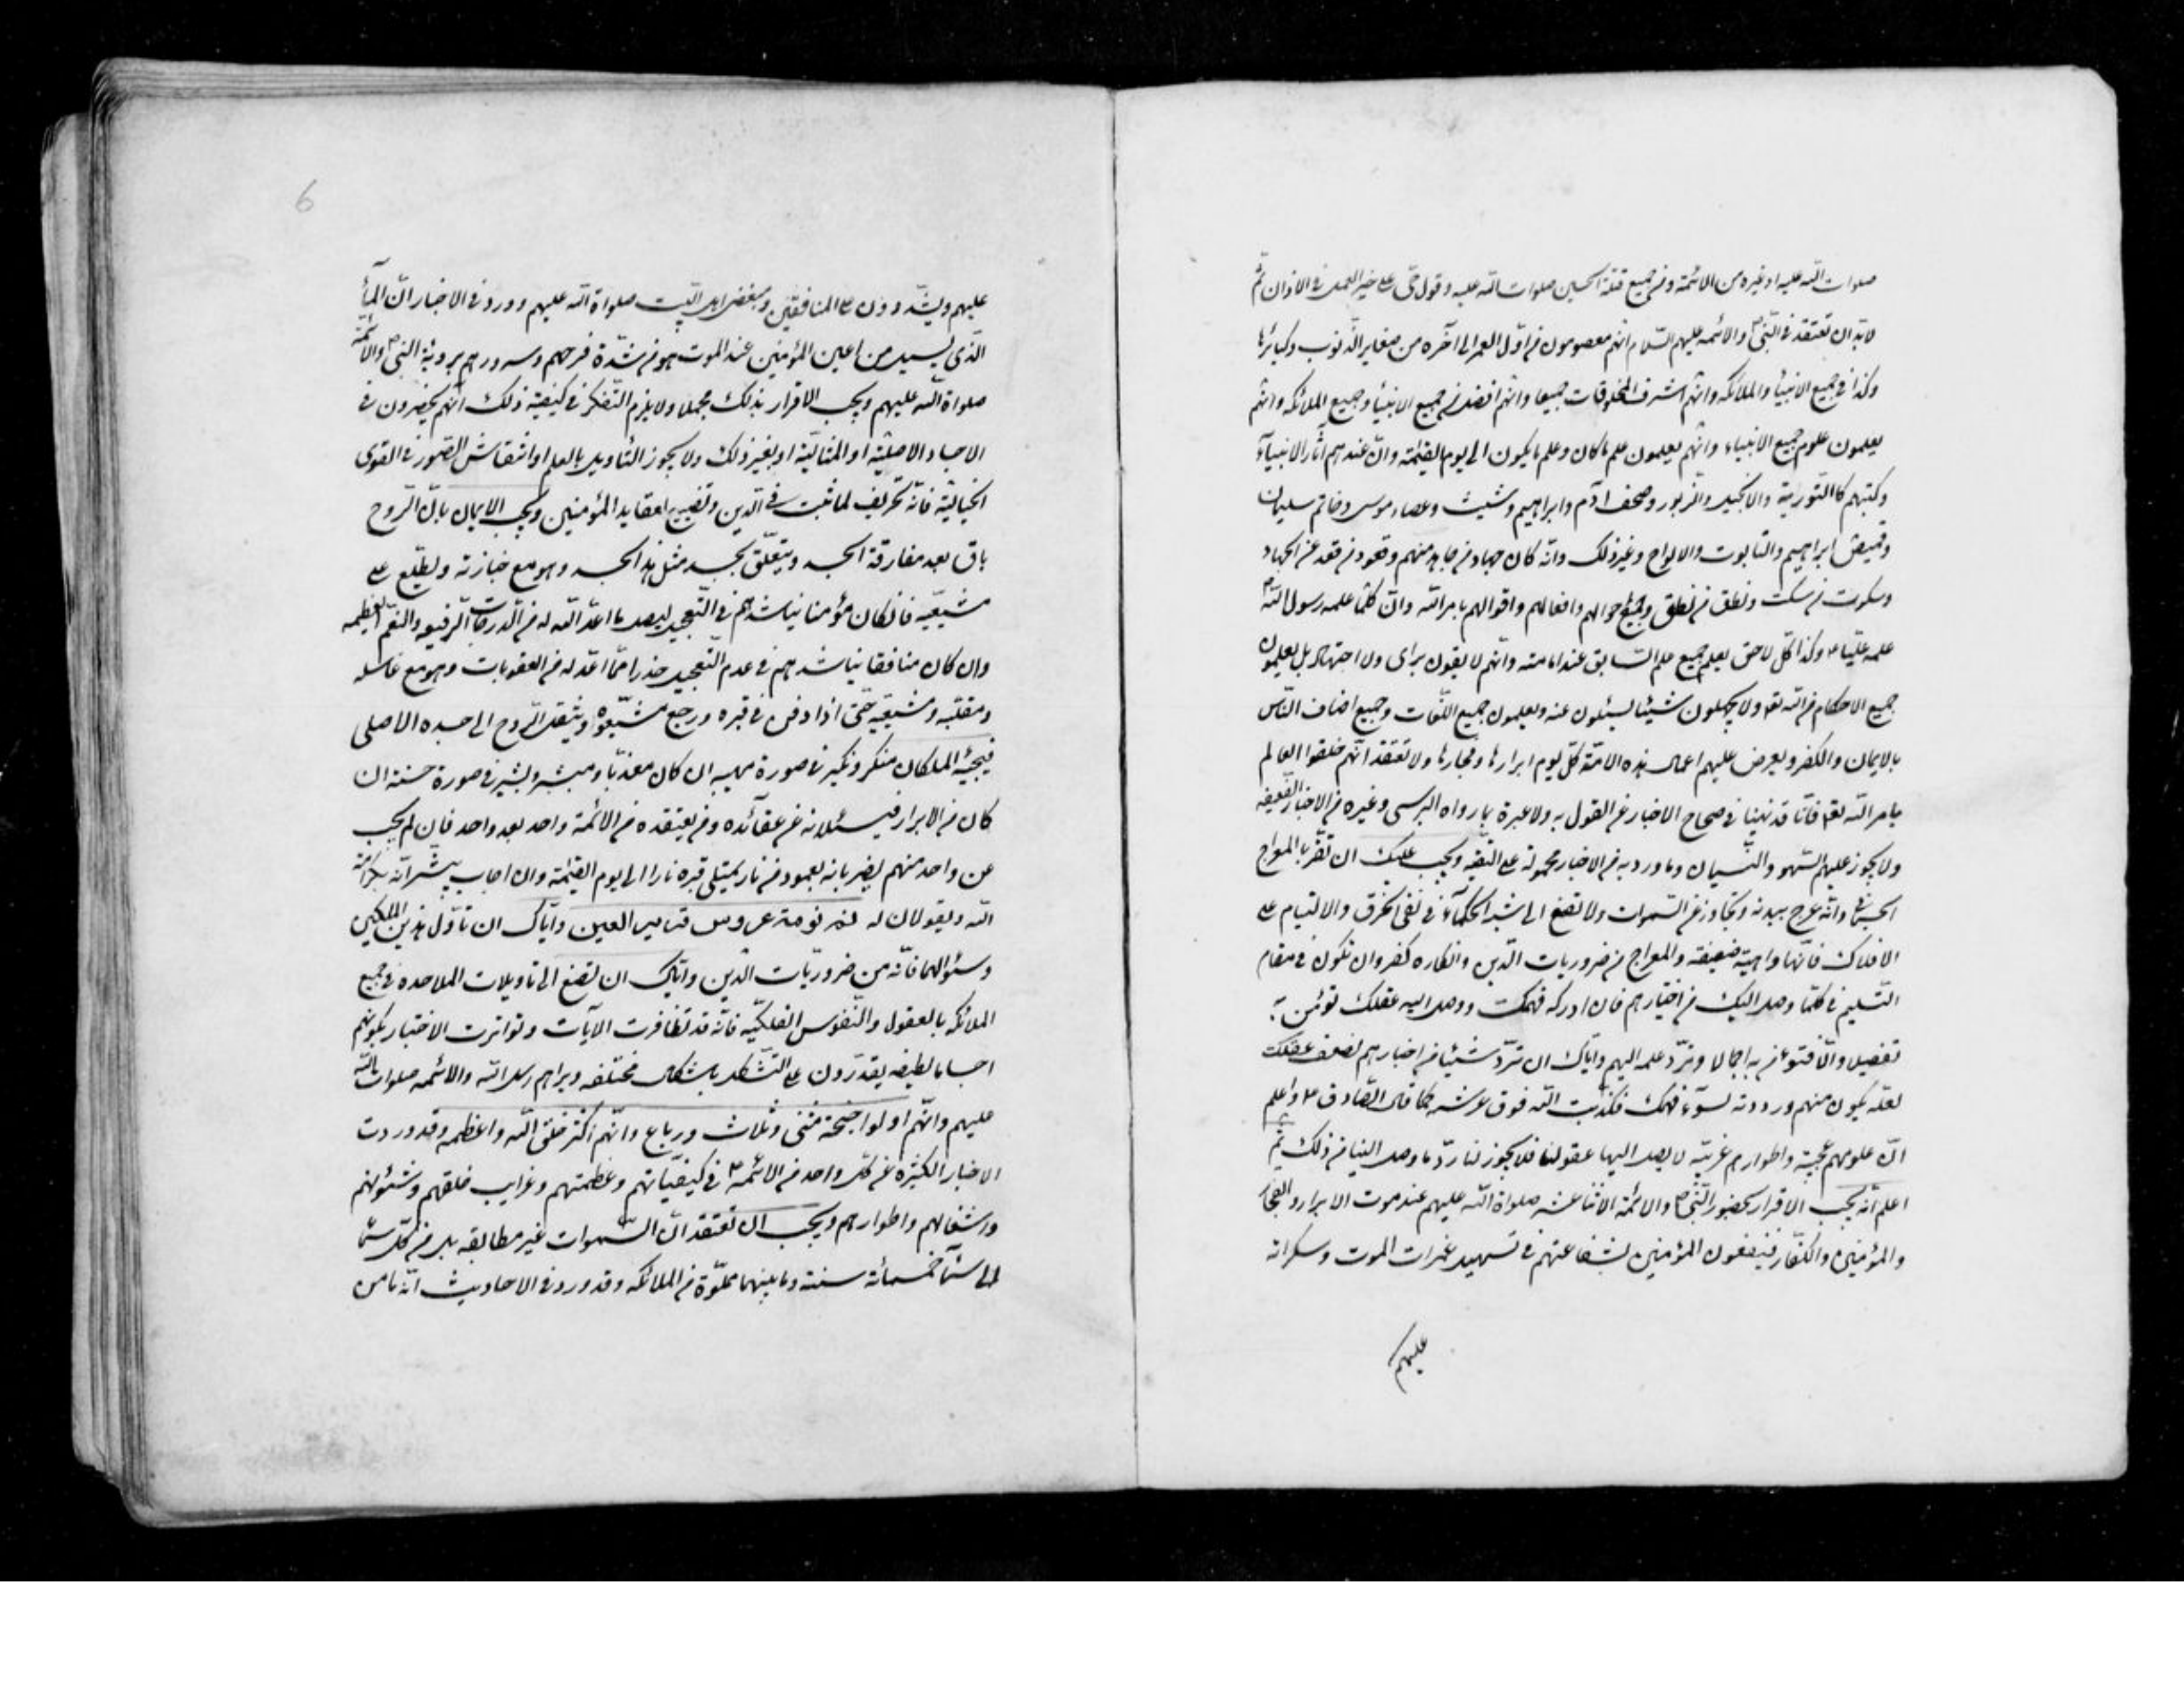 صلوات الله عليه او غيره من الائمة و من جميع قتلة الحسين صلوات الله عليه و قول حی علی خير العمل فی الاذان ثم
لابد ان تعتقد فی النبی ص والائمه عليهم السلام انهم معصومون من اول العمر الی آخره من صغاير الذنوب وكبائرها
وكذا فی جميع الانبيا والملائكه وانهم اشرف المخلوقات جميعا وانهم افضل من جميع الانبيا وجميع الملائكه وانهم
يعلمون علوم جميع الانبياء وانهم يعلمون علم ماكان وعلم مايكون الی يوم القيمة وان عندهم آثار الانبيآء
وكتبهم كالتورية والانجيل والزبور وصحف ادم وابراهيم وشيث وعصاء موسی وخاتم سليمان
وقميص ابراهيم والتابوت والالواح وغير ذلك وانه كان جهاد من جاهد منهم وقعود من قعد عن الجهاد
وسكوت من سكت ونطق من نطق وجميع احوالهم وافعالهم واقوالهم بامر الله وان كلما علمه رسول الله ص
علمه عليا ع وكذا كل لاحق يعلم جميع علم السابق عند امامته وانهم لايقولون برای ولا اجتهاد بل يعلمون
جميع الاحكام من الله تعم ولا يجهلون شيئا يسئلون عنه ويعلمون جميع اللغات وجميع اصناف الناس
بالايمان والكفر ويعرض عليهم اعمال هذه الامة كل يوم ابرارها وفجارها ولا تعتقد انهم خلقوا العالم
بامر الله تعم فانا قد نهينا فی صحاح الاخبار عن القول به ولا عبرة بما رواه البرسی وغيره من الاخبار الضعيفه
ولا يجوز عليهم السهو والنسيان وما ورد به من الاخبار محمولة علی التقيه ويجب عليك ان تقر بالمعراج
الجسمانی وانه عرج ببدنه وتجاوز عن السموات ولا تصغ الی شبه الحكمآء فی نفی الخرق والالتيام علی
الافلاك فانها واهية ضعيفة والمعراج من ضروريات الدين وانكاره كفر وان تكون فی مقام
التسليم فی كلما وصل اليك من اخبارهم فان ادركه فهمك ووصل اليه عقلك تؤمن به
تفصيلا والا فتؤمن به اجمالا وترد علمه اليهم واياك ان ترد شيئا من اخبارهم لضعف عقلك
لعله يكون منهم ورددته لسوء فهمك فكذبت الله فوق عرشه كما قال الصادق ع واعلم
ان علومهم عجيبة واطوارهم غريبة لا يصل اليها عقولنا فلا يجوز لنا رد ما وصل الينا من ذلك ثم
اعلم انه يجب الاقرار بحضور النبی ص والائمة الاثنا عشر صلواة الله عليهم عند موت الابرار والفجار
والمؤمنين والكفار فينفعون المؤمنين بشفاعتهم فی تسهيل غمرات الموت وسكراته
عليهم
6
عليهم ويشددون علی المنافقين ومبغضی اهل البيت صلواة الله عليهم وورد فی الاخبار ان المآء
الذی يسيل من اعين المؤمنين عند الموت هو من شدة فرحهم وسرورهم برؤية النبی ص والائمة
صلواة الله عليهم ويجب الاقرار بذلك مجملا ولا يلزم التفكر فی كيفية ذلك انهم يحضرون فی
الاجساد الاصلية او المثالية او بغير ذلك ولا يجوز التاويل بالعلم او انتقاش الصور فی القوی
الخيالية فانه تحريف لما ثبت فی الدين وتضييع لعقايد المؤمنين ويجب الايمان بان الروح
باق بعد مفارقة الجسد ويتعلق بجسد مثل هذا الجسد وهو مع جنازته ويطلع علی
مشيعيه فان كان مؤمنا يناشدهم فی التعجيل ليصل ما اعد الله له من الدرجات الرفيعه والنعم العظيمه
وان كان منافقا يناشدهم فی عدم التعجيل حذرا مما اعد له من العقوبات وهو مع غاسله
ومقلبه ومشيعيه حتی اذا دفن فی قبره ورجع مشيعوه وينتقل الروح الی جسده الاصلی
فيجيئه الملكان منكر ونكير فی صورة مهيبه ان كان معذبا ومبشر وبشير فی صورة حسنة ان
كان من الابرار فيسئلانه عن عقآئده ومن يعتقده من الائمة واحد بعد واحد فان لم يجب
عن واحد منهم يضربانه بعمود من نار يمتلی قبره نارا الی يوم القيمة وان اجاب يبشرانه بكرامة
الله ويقولان له نم نومة عروس قتابير العين واياك ان تأول هذين الملكين
وسئوالهما فانه من ضروريات الدين واياك ان تصغ الی تاويلات الملاحده فی جميع
الملائكه بالعقول والنفوس الفلكيه فانه قد تظافرت الآيات وتواترت الاخبار بكونهم
اجساما لطيفه يقدرون علی التشكل باشكال مختلفه ويراهم رسل الله والائمه صلوات الله
عليهم وانهم اولوا اجنحة مثنی وثلاث ورباع وانهم اكثر خلق الله واعظمه وقد وردت
الاخبار الكثيرة عن كل واحد من الائمة ع فی كيفياتهم وعظمتهم وغرايب خلقهم وشئونهم
واشغالهم واطوارهم ويجب ان تعتقد ان السموات غير مطابقه بل من كل سمآ
الی سمآ خمسمائة سنة وما بينهما مملوة من الملائكه وقد ورد فی الاحاديث انه ما من